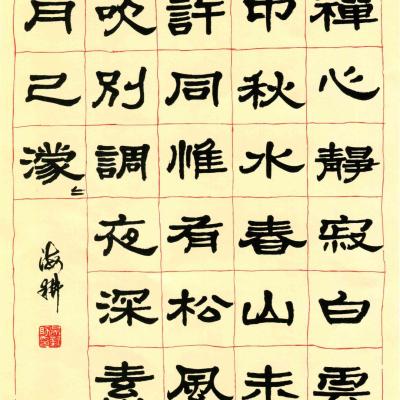 禪心靜寂白雲
中秋水春山未
許同惟有松風
吹別調夜深素
月己濛〻
海耕